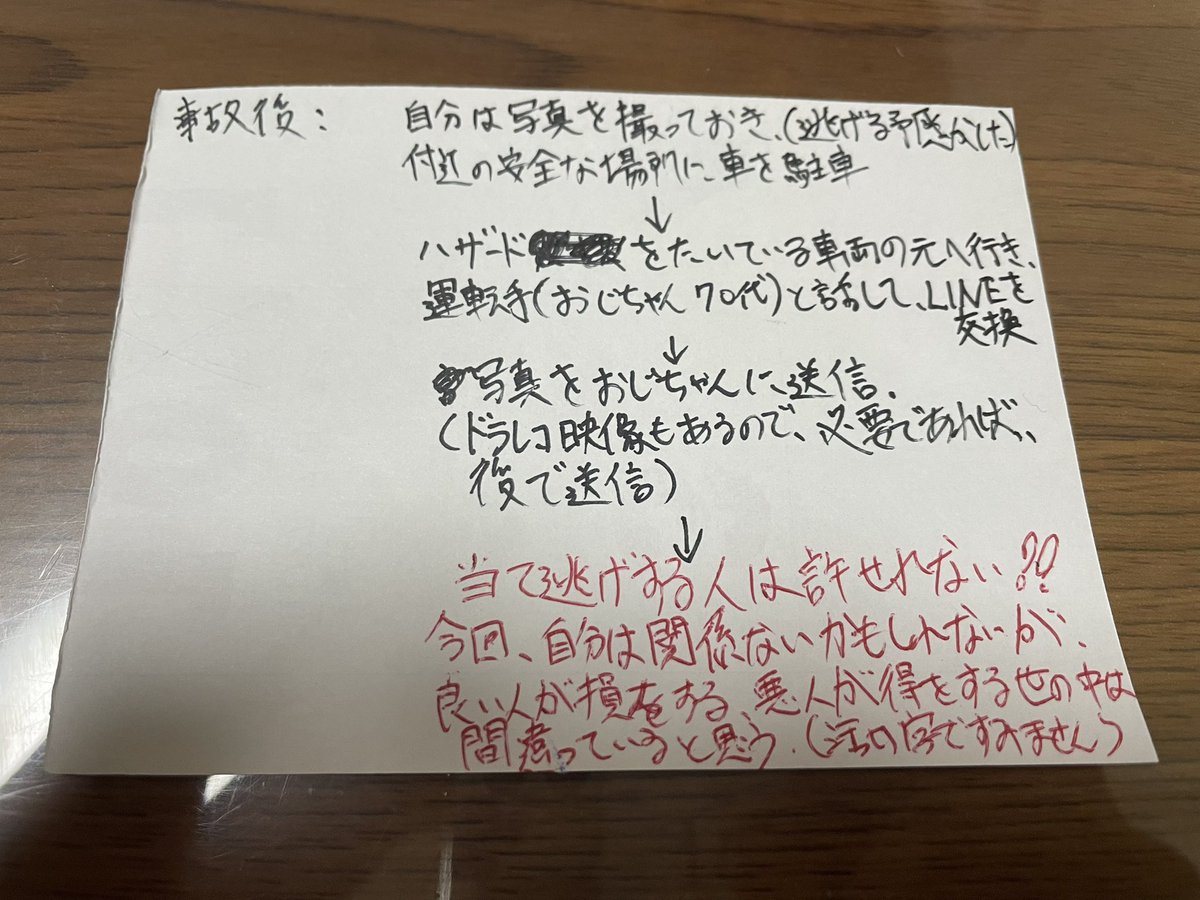 事故後: 自分は写真を撮っておき、(逃げる予感がした)
付近の安全な場所に、車を駐車
↓
ハザードをたいている車両の元へ行き、
運転手(おじちゃん 70代)と話して、LINEを
交換
↓
写真をおじちゃんに、送信。
(ドラレコ映像もあるので、必要であれば、
後で送信)
↓
当て逃げする人は許せれない??
今回、自分は関係ないかもしれないが、
良い人が損をする、悪人が得をする世の中は
間違っていると思う。(の字ですみません)